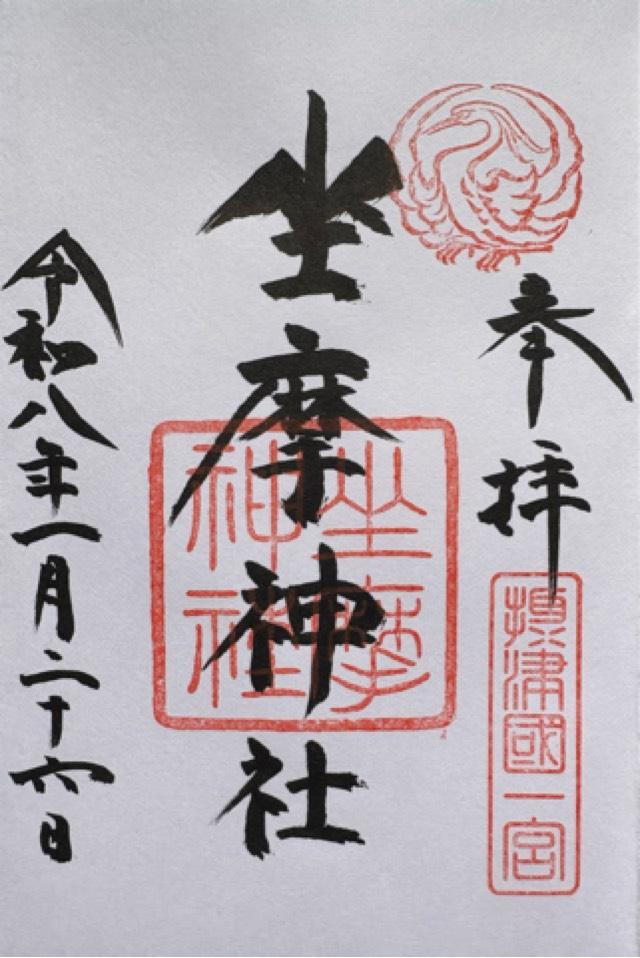 奉拝
摂津國一宮
坐摩神社
坐摩
神社
令和八年一月二十六日